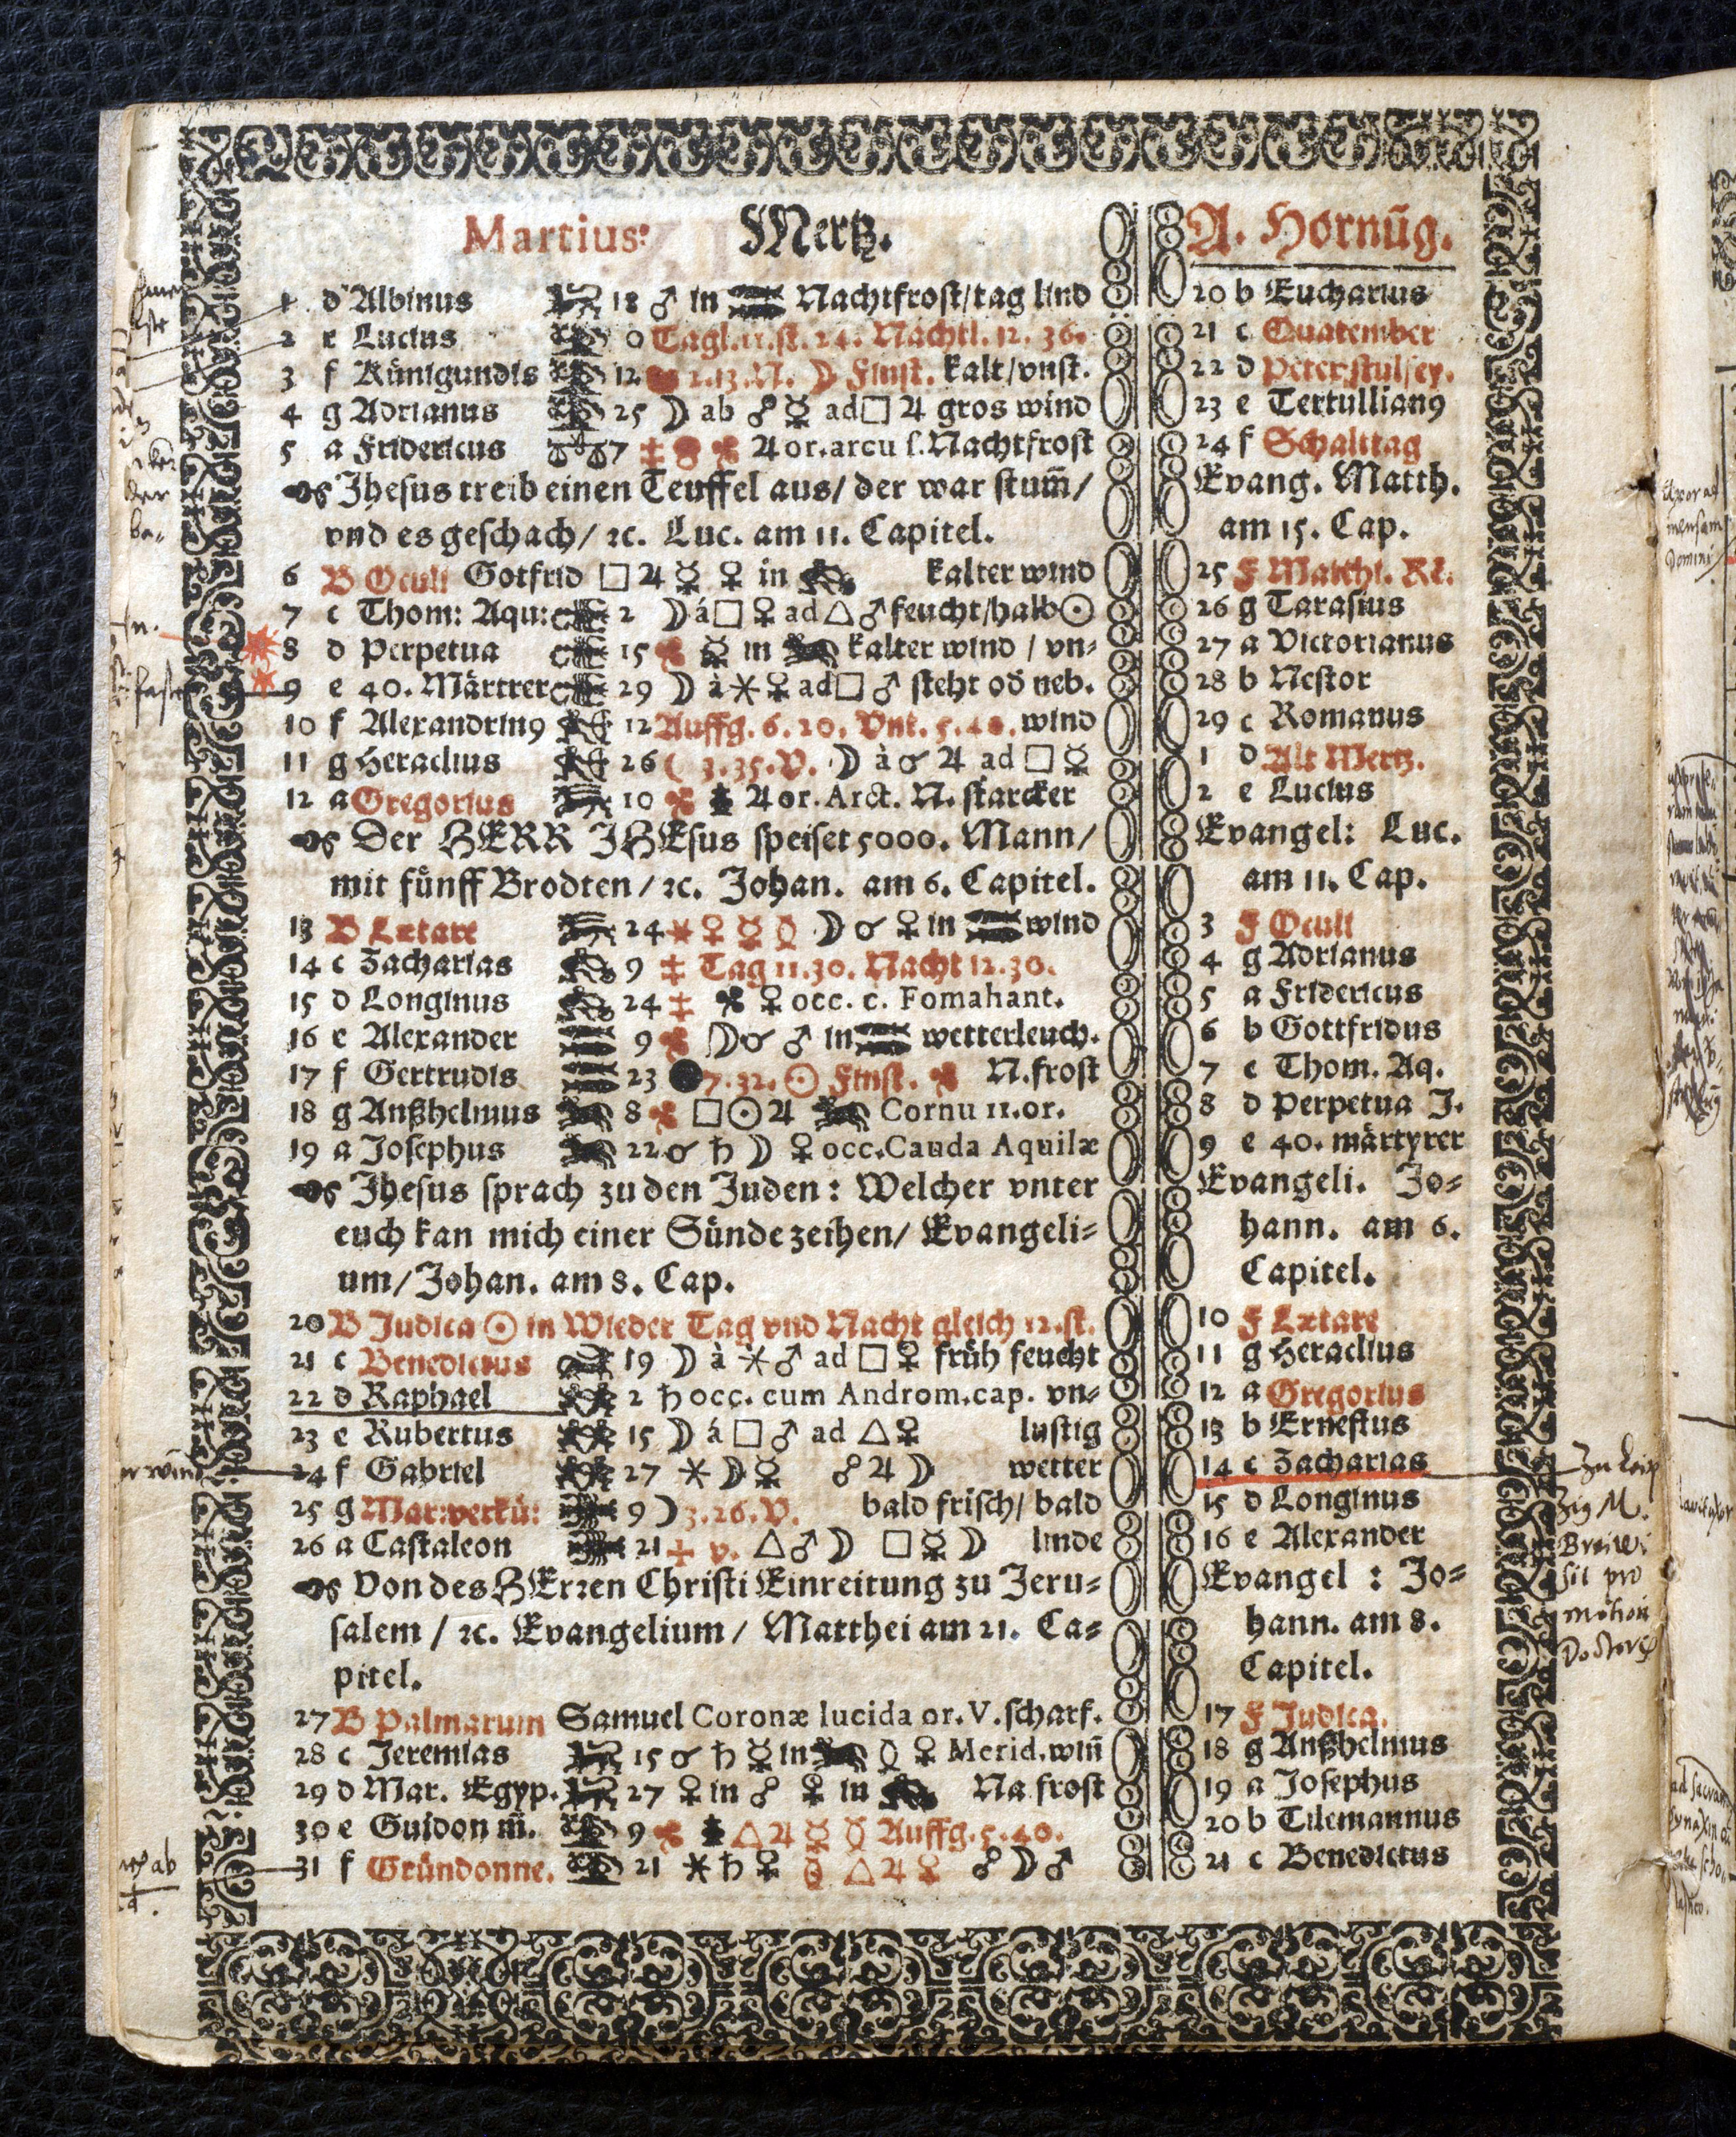 Martius: Mertz.
1 d Albinus 18 ♂ in Nachtfrost/tag lind
2 e Lucius 0 Tagl. 11. st. 24. Nachtl. 12. 36.
3 f Künigundis 12 1.13. N. ☽ Finst. kalt/vnst.
4 g Adrianus 25 ☽ ab ☍ ☿ ad □ ♃ gros wind
5 a Fridericus ♎ 7 ♃ or. arcu s. Nachtfrost
Jhesus treib einen Teuffel aus/ der war stum̃/
vnd es geschach/ ꝛc. Luc. am 11. Capitel.
6 B Oculi Gotfrid □ ♃ ☿ ♀ in kalter wind
7 c Thom: Aqu: 2 ☽ á □ ♀ ad △ ♂ feucht/halb ☉
8 d Perpetua 15 ☿ in kalter wind / vn⸗
9 e 40. Märtrer 29 ☽ à ⚹ ♀ ad □ ♂ steht od̃ neb.
10 f Alexandrinꝰ 12 Auffg. 6. 20. Vnt. 5. 40. wind
11 g Heraclius 26 ☾ 3. 35. V. ☽ à ☌ ♃ ad □ ☿
12 a Gregorius 10 ♃ or. Arct. N. starcker
Der HERR JHEsus speiset 5000. Mann/
mit fünff Brodten/ ꝛc. Johan. am 6. Capitel.
13 B Lætare 24 ⚹ ♀ ☿ ☽ ☌ ♀ in wind
14 c Zacharias 9 ‡ Tag 11. 30. Nacht 12. 30.
15 d Longinus 24 ‡ ♀ occ. c. Fomahant.
16 e Alexander 9 ☽ ☌ ♂ in wetterleuch.
17 f Gertrudis 23 ● 7. 32. ☉ Finst. N. frost
18 g Anßhelmus 8 □ ☉ ♃ Cornu 11. or.
19 a Josephus 22 ☌ ♄ ☽ ♀ occ. Cauda Aquilæ
Jhesus sprach zu den Juden: Welcher vnter
euch kan mich einer Sünde zeihen/ Evangeli⸗
um/ Johan. am 8. Cap.
20 B Judica ☉ in Wieder Tag vnd Nacht gleich 12. st.
21 c Benedictus 19 ☽ à ⚹ ♂ ad □ ♀ früh feucht
22 d Raphael 2 ♄ occ. cum Androm. cap. vn⸗
23 e Rubertus 15 ☽ á □ ♂ ad △ ♀ lustig
24 f Gabriel 27 ⚹ ☽ ☿ ☍ ♃ ☽ wetter
25 g Mar: verkü: 9 ☽ 3. 26. V. bald frisch/ bald
26 a Castaleon 21 v. △ ♂ ☽ □ ☿ ☽ linde
Von des HErꝛen Christi Einreitung zu Jeru⸗
salem / ꝛc. Evangelium / Matthei am 21. Ca⸗
pitel.
27 B Palmarum Samuel Coronæ lucida or. V. scharf.
28 c Jeremias 15 ☌ ♄ ☿ in ♀ Merid. win̄
29 d Mar. Egyp. 27 ♀ in ☍ ♀ in Na frost
30 e Guidon m̃. 9 △ ♃ ☿ Auffg. 5. 40.
31 f Gründonne. 21 ⚹ ♄ ♀ △ ♃ ☿ ☍ ☽ ♂
A. Hornũg.
20 b Eucharius
21 c Quatember
22 d Peter stulfey.
23 e Tertullianꝰ
24 f Schalttag
Evang. Matth.
am 15. Cap.
25 F Matthi. Re.
26 g Tarasius
27 a Victorianus
28 b Nestor
29 c Romanus
1 d Alt Mertz.
2 e Lucius
Evangel: Luc.
am 11. Cap.
3 F Oculi
4 g Adrianus
5 a Fridericus
6 b Gottfridus
7 c Thom. Aq.
8 d Perpetua J.
9 e 40. märtyrer
Evangeli. Jo⸗
hann. am 6.
Capitel.
10 F Lætare
11 g Heraclius
12 a Gregorius
13 b Ernestus
14 c Zacharias
15 d Longinus
16 e Alexander
Evangel : Jo⸗
hann. am 8.
Capitel.
17 F Judica.
18 g Anßhelmus
19 a Josephus
20 b Tilemannus
21 c Benedictus
Zu Leip
zig M.